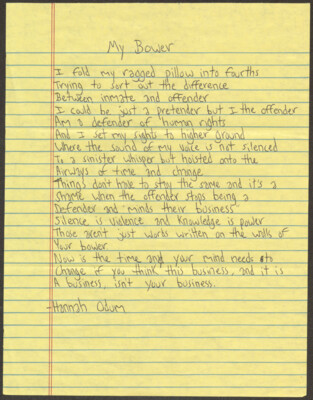 My Bower
I fold my ragged pillow into fourths
Trying to sort out the difference
Between inmate and offender
I could be just a pretender but I the offender
Am a defender of human rights
And I set my sights to higher ground
Where the sound of my voice is not silenced
To a sinister whisper but hoisted onto the
Airways of time and change.
Things don't have to stay the same and it's a
Shame when the offender stops being a
Defender and "minds their business"
Silence is violence and knowledge is power
Those aren't just words written on the walls of
Your bower.
Now is the time and your mind needs to
Change if you think this business, and it is
A business, isn't your business.
-Hannah Odum